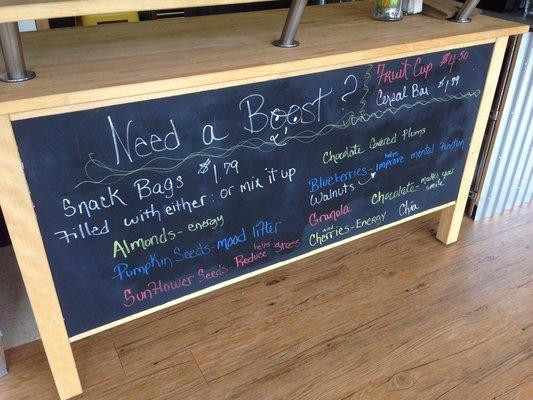 Need a Boost?
Fruit Cup $4.50
Cereal Bar $1.79
Snack Bags $1.79
Filled with either: or mix it up
Almonds - energy
Pumpkin Seeds - mood lifter
SunFlower Seeds - helps Reduce Stress
Chocolate Covered Plums
Blueberries - helps Improve mental Function
Walnuts
Granola
Chocolate - makes you smile
Cherries and - Energy
Chia